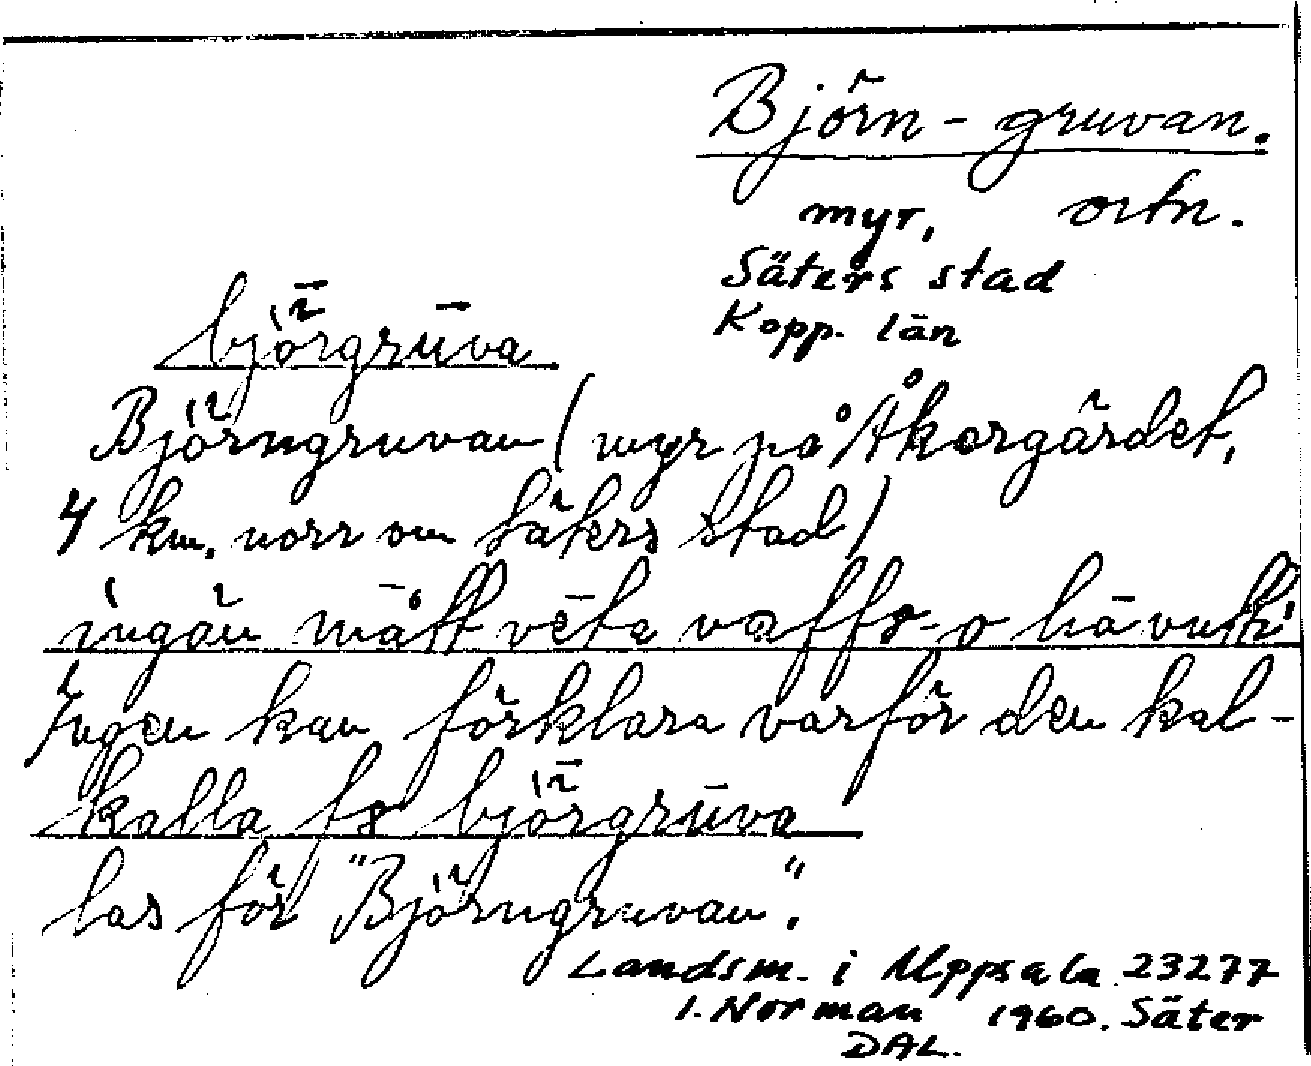 Björn-gruvan.
myr, ortn.
Säters stad
Kopp. län
björgrūva
Björngruvan (myr på Åkergärdet,
4 km. norr om Säters stad)
ingän mått vēta vaffo-o
Ingen kan förklara varför den kal-
kalla fo björgrūva
las för "Björngruvan".
Landsm. i Uppsala 23277
I. Norman 1960. Säter
DAL.